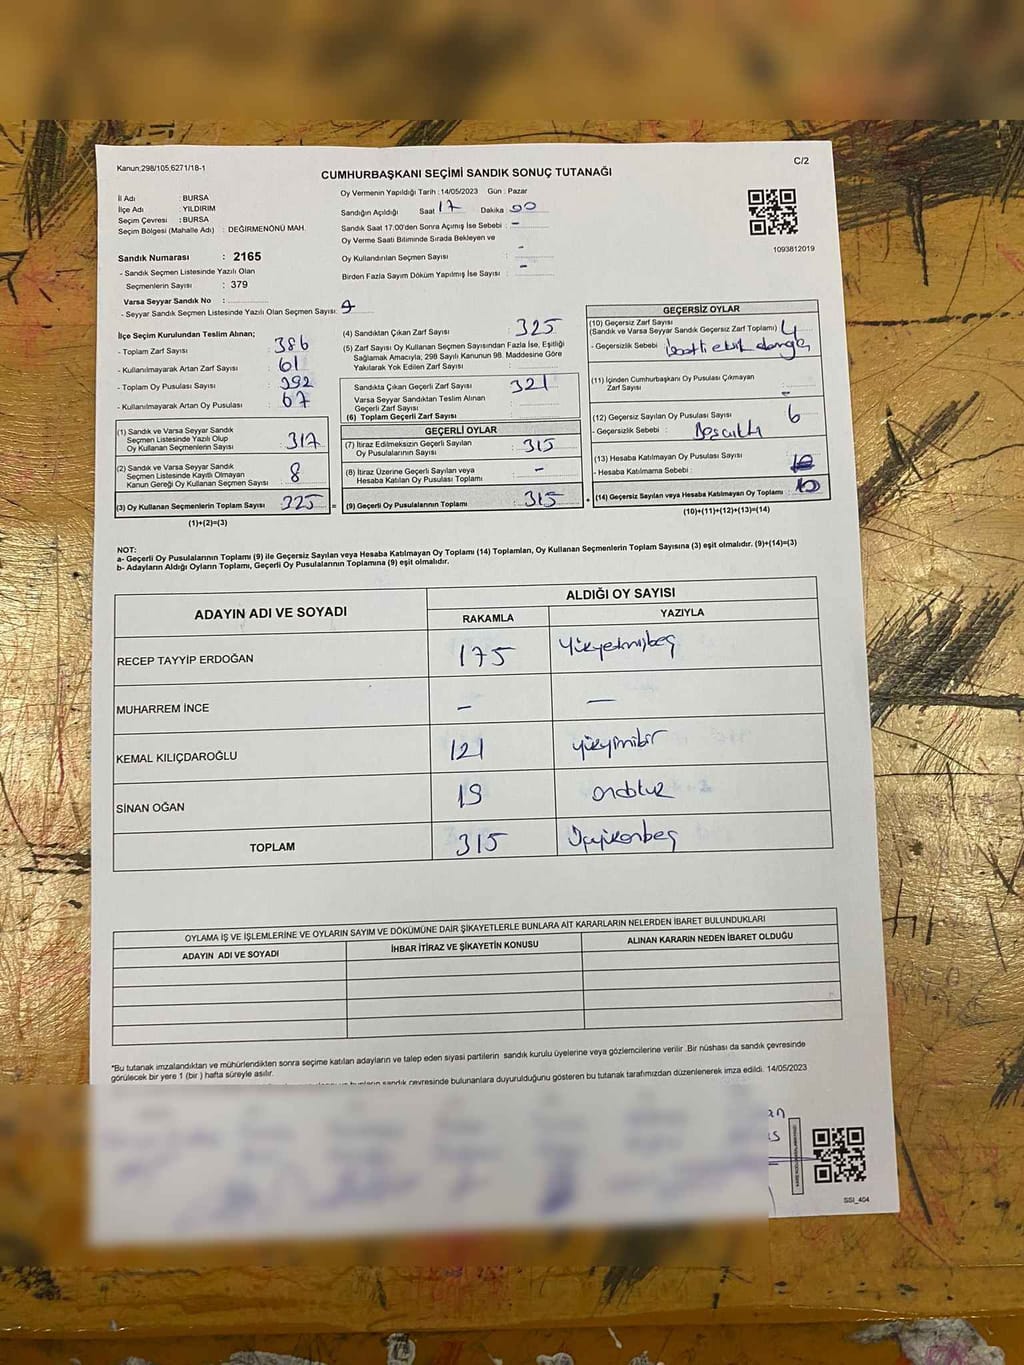 Kanun;298/105;6271/18-1
C/2
CUMHURBAŞKANI SEÇİMİ SANDIK SONUÇ TUTANAĞI
İl Adı : BURSA
İlçe Adı : YILDIRIM
Seçim Çevresi : BURSA
Seçim Bölgesi (Mahalle Adı) : DEĞİRMENÖNÜ MAH.
Sandık Numarası : 2165
- Sandık Seçmen Listesinde Yazılı Olan
Seçmenlerin Sayısı : 379
Varsa Seyyar Sandık No :
- Seyyar Sandık Seçmen Listesinde Yazılı Olan Seçmen Sayısı:
Oy Vermenin Yapıldığı Tarih :14/05/2023 Gün : Pazar
Sandığın Açıldığı Saat 17 Dakika 00
Sandık Saat 17.00'den Sonra Açımış İse Sebebi : -
Oy Verme Saati Bitiminde Sırada Bekleyen ve
Oy Kullandırılan Seçmen Sayısı : -
Birden Fazla Sayım Döküm Yapılmış İse Sayısı : -
1093812019
İlçe Seçim Kurulundan Teslim Alınan;
- Toplam Zarf Sayısı : 386
- Kullanılmayarak Artan Zarf Sayısı : 61
- Toplam Oy Pusulası Sayısı : 392
- Kullanılmayarak Artan Oy Pusulası : 67
(1) Sandık ve Varsa Seyyar Sandık
Seçmen Listesinde Yazılı Olup
Oy Kullanan Seçmenlerin Sayısı : 317
(2) Sandık ve Varsa Seyyar Sandık
Seçmen Listesinde Kayıtlı Olmayan
Kanun Gereği Oy Kullanan Seçmen Sayısı : 8
(3) Oy Kullanan Seçmenlerin Toplam Sayısı : 325
(1)+(2)=(3)
(4) Sandıktan Çıkan Zarf Sayısı : 325
(5) Zarf Sayısı Oy Kullanan Seçmen Sayısından Fazla İse, Eşitliği
Sağlamak Amacıyla; 298 Sayılı Kanunun 98. Maddesine Göre
Yakılarak Yok Edilen Zarf Sayısı :
Sandıkta Çıkan Geçerli Zarf Sayısı : 321
Varsa Seyyar Sandıktan Teslim Alınan
Geçerli Zarf Sayısı :
(6) Toplam Geçerli Zarf Sayısı :
GEÇERLİ OYLAR
(7) İtiraz Edilmeksizin Geçerli Sayılan
Oy Pusulalarının Sayısı : 315
(8) İtiraz Üzerine Geçerli Sayılan veya
Hesaba Katılan Oy Pusulası Toplamı : -
(9) Geçerli Oy Pusulalarının Toplamı : 315
GEÇERSİZ OYLAR
(10) Geçersiz Zarf Sayısı
(Sandık ve Varsa Seyyar Sandık Geçersiz Zarf Toplamı) : 4
- Geçersizlik Sebebi :
(11) İçinden Cumhurbaşkanı Oy Pusulası Çıkmayan
Zarf Sayısı : -
(12) Geçersiz Sayılan Oy Pusulası Sayısı : 6
- Geçersizlik Sebebi :
(13) Hesaba Katılmayan Oy Pusulası Sayısı :
- Hesaba Katılmama Sebebi :
(14) Geçersiz Sayılan veya Hesaba Katılmayan Oy Toplamı : 10
(10)+(11)+(12)+(13)=(14)
NOT:
a- Geçerli Oy Pusulalarının Toplamı (9) ile Geçersiz Sayılan veya Hesaba Katılmayan Oy Toplamı (14) Toplamları, Oy Kullanan Seçmenlerin Toplam Sayısına (3) eşit olmalıdır. (9)+(14)=(3)
b- Adayların Aldığı Oyların Toplamı, Geçerli Oy Pusulalarının Toplamına (9) eşit olmalıdır.
ADAYIN ADI VE SOYADI
ALDIĞI OY SAYISI
RAKAMLA YAZIYLA
RECEP TAYYİP ERDOĞAN 175 Yüzyetmişbeş
MUHARREM İNCE - -
KEMAL KILIÇDAROĞLU 121 yüzyirmibir
SİNAN OĞAN 19 ondokuz
TOPLAM 315 Üçyüzonbeş
OYLAMA İŞ VE İŞLEMLERİNE VE OYLARIN SAYIM VE DÖKÜMÜNE DAİR ŞİKAYETLERLE BUNLARA AİT KARARLARIN NELERDEN İBARET BULUNDUKLARI
ADAYIN ADI VE SOYADI İHBAR İTİRAZ VE ŞİKAYETİN KONUSU ALINAN KARARIN NEDEN İBARET OLDUĞU
"Bu tutanak imzalandıktan ve mühürlendikten sonra seçime katılan adayların ve talep eden siyasi partilerin sandık kurulu üyelerine veya gözlemcilerine verilir .Bir nüshası da sandık çevresinde
görülecek bir yere 1 (bir ) hafta süreyle asılır.
sandık çevresinde bulunanlara duyurulduğunu gösteren bu tutanak tarafımızdan düzenlenerek imza edildi. 14/05/2023
SSI_404